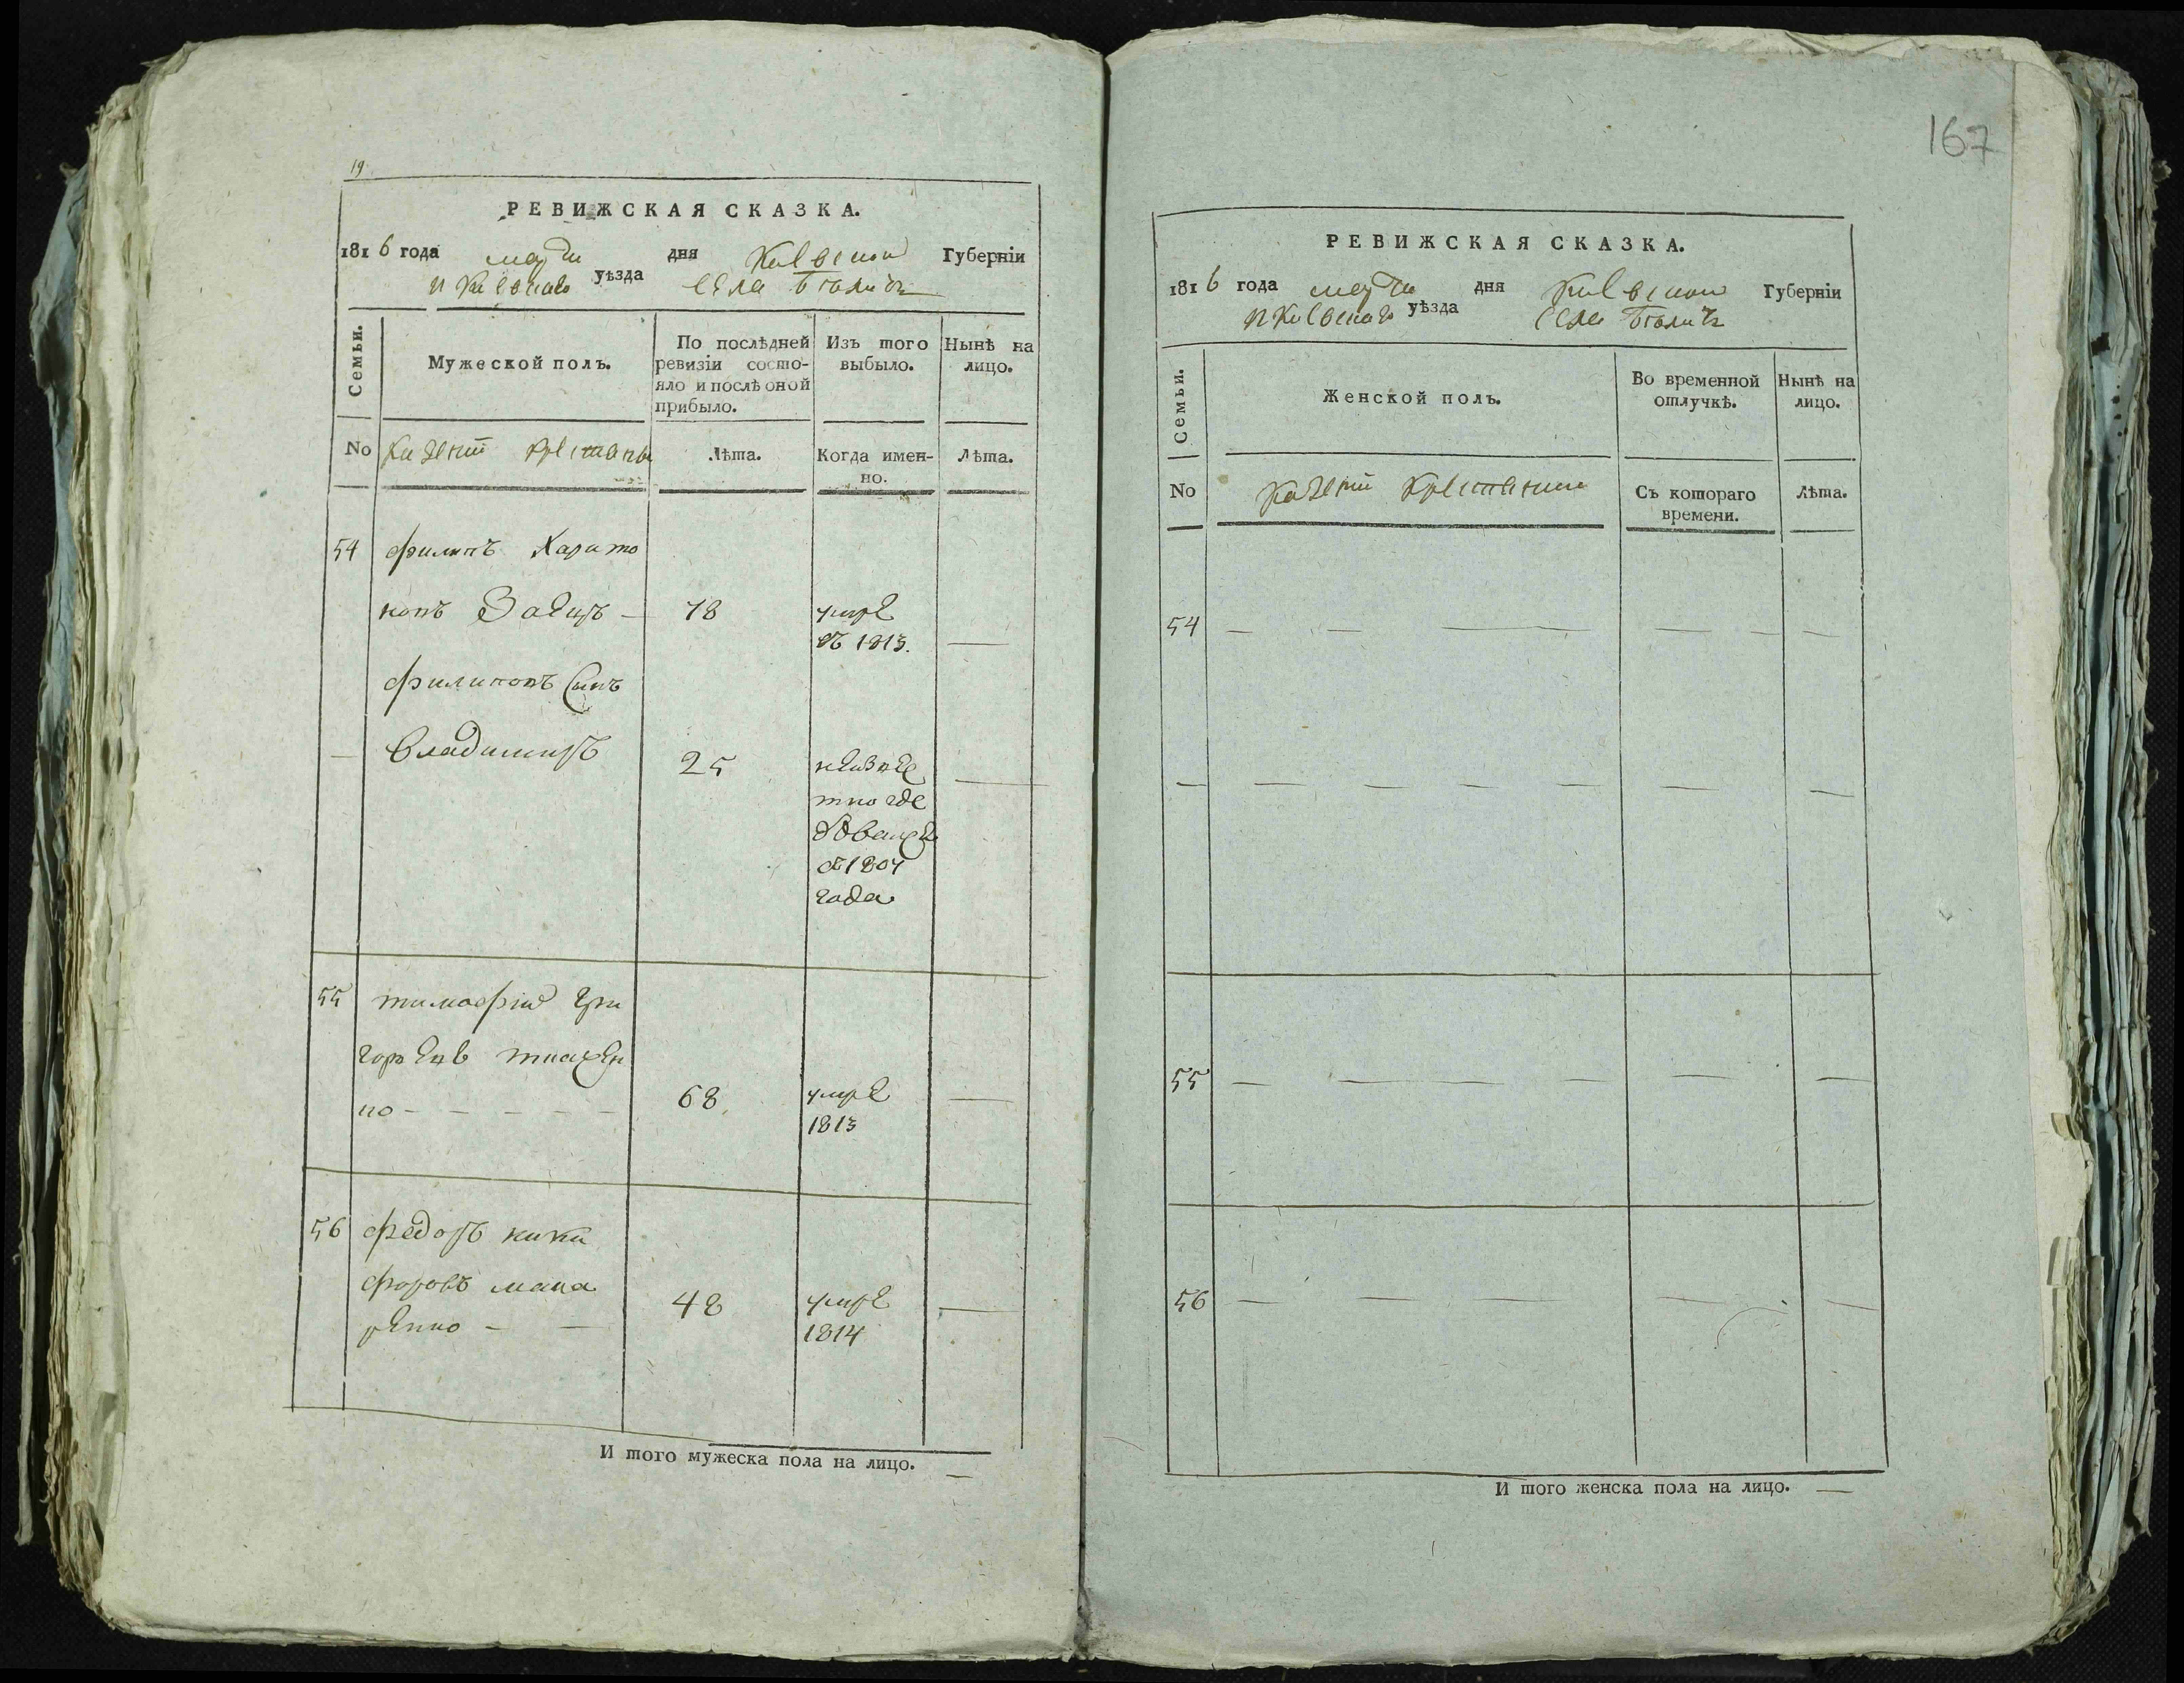 19
РЕВИЖСКАЯ СКАЗКА.
1816 года марта дня Киевской Губерніи
и Киевскаго уѣзда села
Семьи.
Мужеской полъ.
По послѣдней ревизіи состо-
яло и послѣ оной
прибыло.
Изъ того
выбыло.
Нынѣ на
лицо.
No казенніи крестяны
Лѣта.
Когда имен-
но.
Лѣта.
54 Филипъ Харито
новъ Заецъ — 78 умре
въ 1813. —
Филиповъ Сынъ
— Владимиръ 25 неизвѣ —
тно где
1804
года
55 тимофій гри
горіевъ ткачен
ко - - - - - 68 умре —
1813
56 Федоръ ники
форовъ мака
ренко - — 48 умре —
1814
И того мужеска пола на лицо. —
167
РЕВИЖСКАЯ СКАЗКА.
1816 года марта дня Киевской Губерніи
и Киевскаго уѣзда села
Семьи.
Женской полъ.
Во временной
отлучкѣ.
Нынѣ на
лицо.
No казенніи крестяны
Съ котораго
времени.
Лѣта.
54 — — — — — —
— — — — — — — —
55 — — — — — —
56 — — — — —
И того женска пола на лицо. —